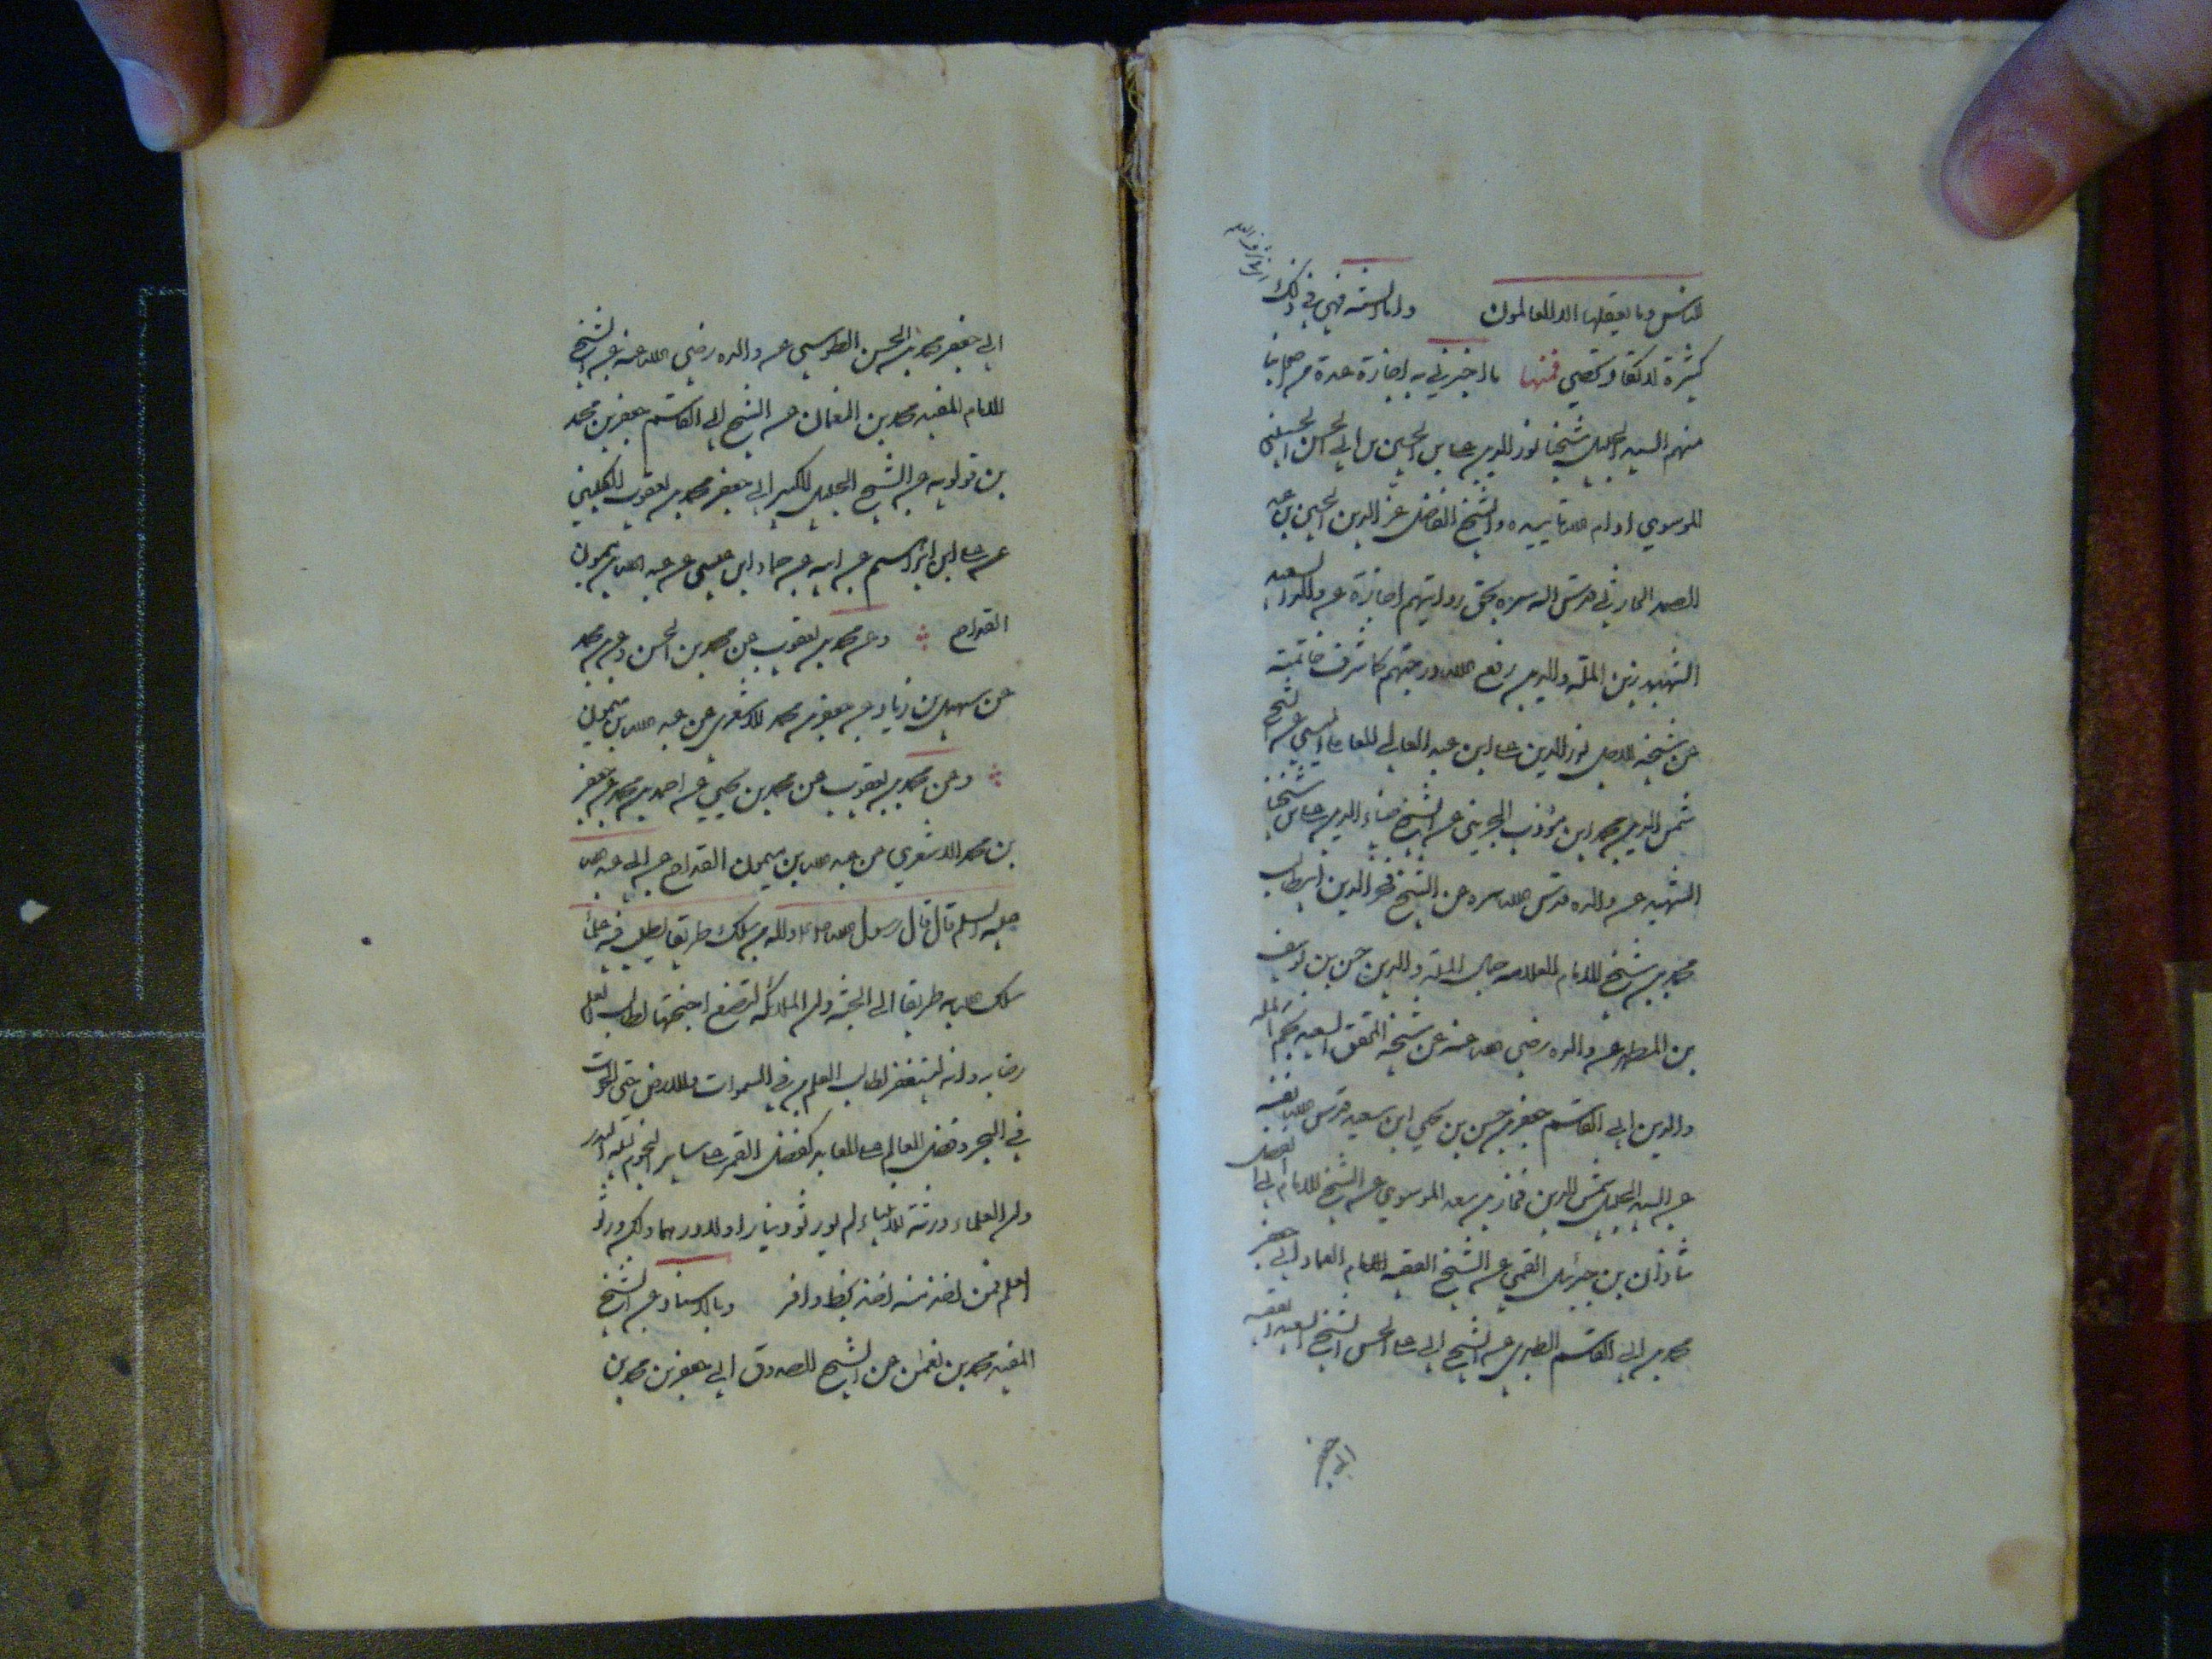 للناس وما يعقلها الا العالمون واما السنة فهي في ذلك
كثيرة لا تكاد تحصى فمنها ما اخبرني به اجازة عدة من اصحابنا
منهم السيد الجليل شيخنا نور الدين علي بن الحسين بن ابي الحسن الحسيني
الموسوي ادام الله تاييده والشيخ الفاضل عز الدين الحسين بن عبد
الصمد الحارثي قدس الله سره بحق روايتهم اجازة عن والدي السعيد
الشهيد زين الملة والدين رفع الله درجتهم كما شرف خاتمته
عن شيخه الاجل نور الدين علي ابن عبد العالي العاملي الميسي عن الشيخ
شمس الدين محمد ابن مؤذن الجزيني عن الشيخ ضياء الدين علي بن شيخنا
الشهيد عن والده قدس الله سره عن الشيخ فخر الدين ابي طالب
محمد بن شيخ الامام العلامة جمال الملة والدين حسن بن يوسف
بن المطهر عن والده رضي الله عنه عن شيخه المحقق السعيد نجم الملة
والدين ابي القاسم جعفر بن حسن بن يحيي ابن سعيد قدس الله نفسه
عن السيد الجليل شمس الدين فخار بن معد الموسوي عن الشيخ الامام ابي الفضل
شاذان بن جبرئيل القمي عن الشيخ الفقيه الامام العماد ابي جعفر
محمد بن ابي القاسم الطبري عن الشيخ ابي علي الحسن ابن الشيخ السعيد الفقيه
ابي جعفر
ابي جعفر محمد بن الحسن الطوسي عن والده رضي الله عنه عن الشيخ
الامام المفيد محمد بن النعمان عن الشيخ ابي القاسم جعفر بن محمد
بن قولويه عن الشيخ الجليل الكبير ابي جعفر محمد بن يعقوب الكليني
عن علي ابن ابراهيم عن ابيه عن حماد ابن عيسى عن عبد الله بن ميمون
القداح وعن محمد بن يعقوب عن محمد بن الحسن وعلي بن محمد
عن سهل بن زياد عن جعفر بن محمد الاشعري عن عبد الله بن ميمون
وعن محمد بن يعقوب عن محمد بن يحيي عن احمد بن محمد عن جعفر
بن محمد الاشعري عن عبد الله بن ميمون القداح عن ابي عبد الله
عليه السلم قال قال رسول الله صلى الله عليه واله من سلك طريقا يطلب فيه علما
سلك الله به طريقا الى الجنة وان الملائكة لتضع اجنحتها لطالب العلم
رضا به وانه ليستغفر لطالب العلم من في السموات والارض حتى الحوت
في البحر وفضل العالم على العابد كفضل القمر على سائر النجوم ليلة البدر
وان العلماء ورثة الانبياء لم يورثوا دينارا ولا درهما ولكن ورثوا
العلم فمن اخذ منه اخذ بحظ وافر وبالاسناد عن الشيخ
المفيد محمد بن نعمان عن الشيخ الصدوق ابي جعفر بن محمد بن